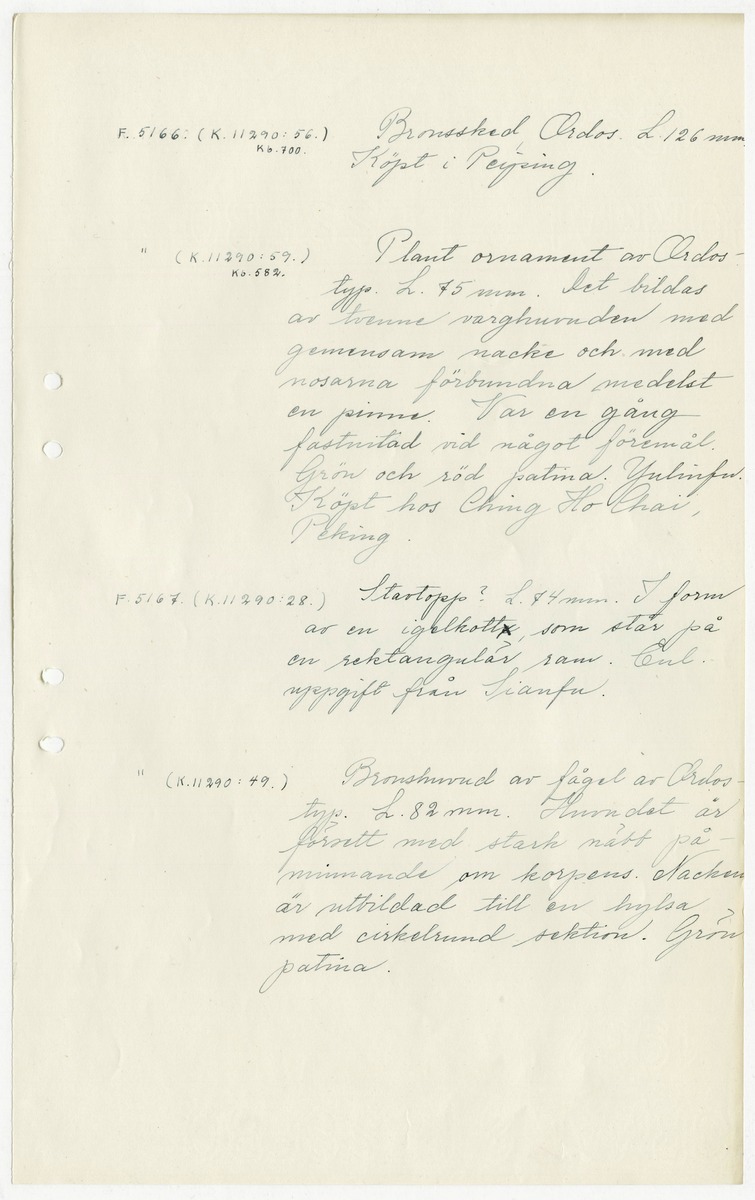 F. 5166. (K. 11290: 56.) Bronssked, Ordos. L. 126 mm.
Kb. 700. Köpt i Peiping.
" (K. 11290: 59.) Plant ornament av Ordos-
Kb. 582. typ. L. 75 mm. Det bildas
av tvenne varghuvuden med
gemensam nacke och med
nosarna förbundna medelst
en pinne. Var en gång
fastnitad vid något föremål.
Grön och röd patina. Yulinfu.
Köpt hos Ching Ho Chai,
Peking.
F. 5167. (K. 11290: 28.) Stavtopp? L. 74 mm. I form
av en igelkott, som står på
en rektangulär ram. Enl.
uppgift från Sianfu.
" (K. 11290: 49.) Bronshuvud av fågel av Ordos-
typ. L. 82 mm. Huvudet är
försett med stark näbb på-
minnande om korpens. Nacken
är utbildad till en hylsa
med cirkelrund sektion. Grön
patina.